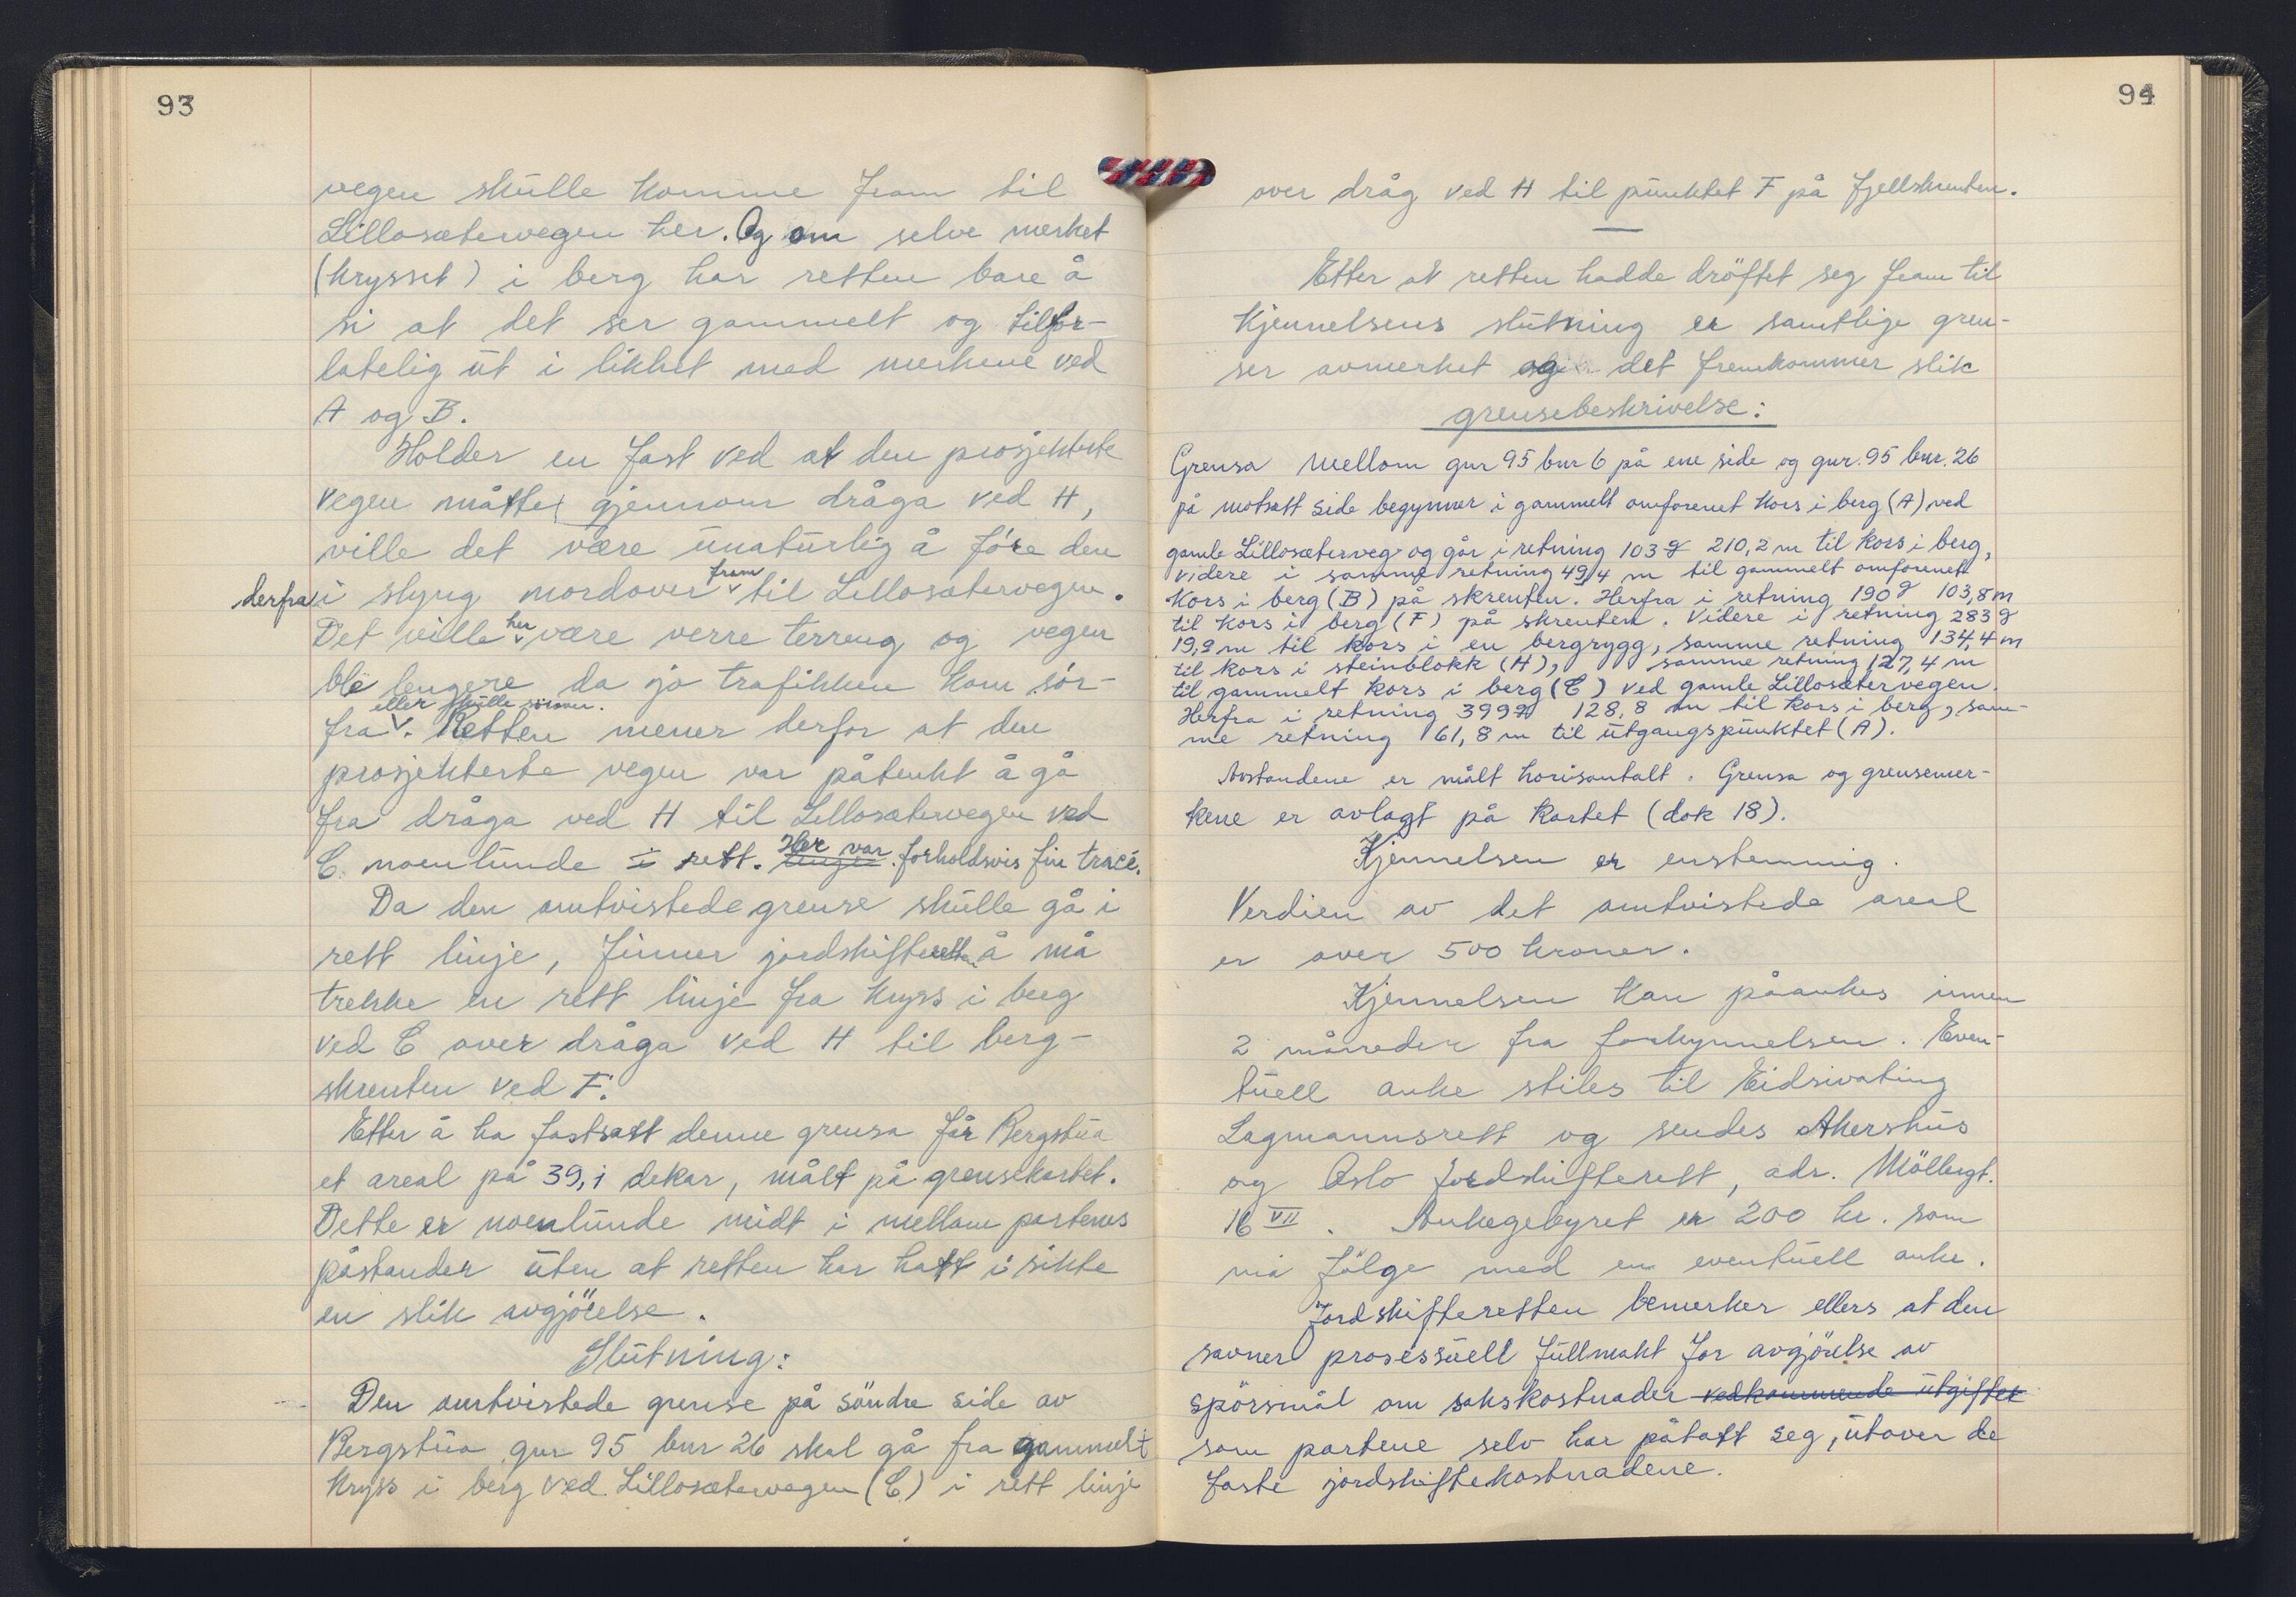 93
vegen skulle komme fram til
Lillosætervegen her. Og om selve merket
(krysset) i berg har retten bare å
si at det ser gammelt og tilfor-
latelig ut i likhet med merkene ved
A og B.
Holder en fast ved at den prosjekterte
vegen måtte gjennom dråga ved H,
ville det være unaturlig å føre den
derfra i slyng nordover fram til Lillosætervegen.
Det ville her være verre terreng og vegen
ble lengere da jo trafikken kom sør-
eller skulle sørover.
fra. Retten mener derfor at den
prosjekterte vegen var påtenkt å gå
fra dråga ved H til Lillosætervegen ved
C noenlunde i rett. Her var forholdsvis fin tracé.
Da den omtvistede grense skulle gå i
rett linje, finner jordskifteretten å må
trekke en rett linje fra kryss i berg
ved C over dråga ved H til berg-
skrenten ved F.
Etter å ha fastsatt denne grensa får Bergstua
et areal på 39,1 dekar, målt på grensekartet.
Dette er noenlunde midt i mellom partenes
påstander uten at retten har hatt i sikte
en slik avgjörelse.
Slutning:
Den omtvistede grense på söndre side av
Bergstua gnr 95 bnr 26 skal gå fra gammelt
kryss i berg ved Lillosætervegen (C) i rett linje
94
over dråg ved H til punktet F på fjellskrenten.
Etter at retten hadde dröftet seg fram til
kjennelsens slutning er samtlige gren-
ser avmerket og det fremkommer slik
grensebeskrivelse:
Grensa mellom gnr 95 bnr 6 på ene side og gnr. 95 bnr. 26
på motsatt side begynner i gammelt omforenet kors i berg (A) ved
gamle Lillosæterveg og går i retning 103 g 210,2 m til kors i berg,
videre i samme retning 49,4 m til gammelt omforenet
kors i berg (B) på skrenten. Herfra i retning 190 g 103,8 m
til kors i berg (F) på skrenten. Videre i retning 283 g
19,2 m til kors i en bergrygg, samme retning 134,4 m
til kors i steinblokk (H), samme retning 127,4 m
til gammelt kors i berg (C) ved gamle Lillosætervegen.
Herfra i retning 399 g 128,8 m til kors i berg, sam-
me retning 61,8 m til utgangspunktet (A).
Avstandene er målt horisontalt. Grensa og grensemer-
kene er avlagt på kartet (dok 18).
Kjennelsen er enstemmig.
Verdien av det omtvistede areal
er over 500 kroner.
Kjennelsen kan påankes innen
2 måneder fra forkynnelsen. Even-
tuell anke stiles til Eidsivating
Lagmannsrett og sendes Akershus
og Oslo jordskifterett, adr. Möllergt.
16 VII. Ankegebyret er 200 kr. som
må fölge med en eventuell anke.
Jordskifteretten bemerker ellers at den
savner prosessuell fullmakt for avgjörelse av
spörsmål om sakskostnader vedkommende utgifter
som partene selv har påtatt seg, utover de
faste jordskiftekostnadene.